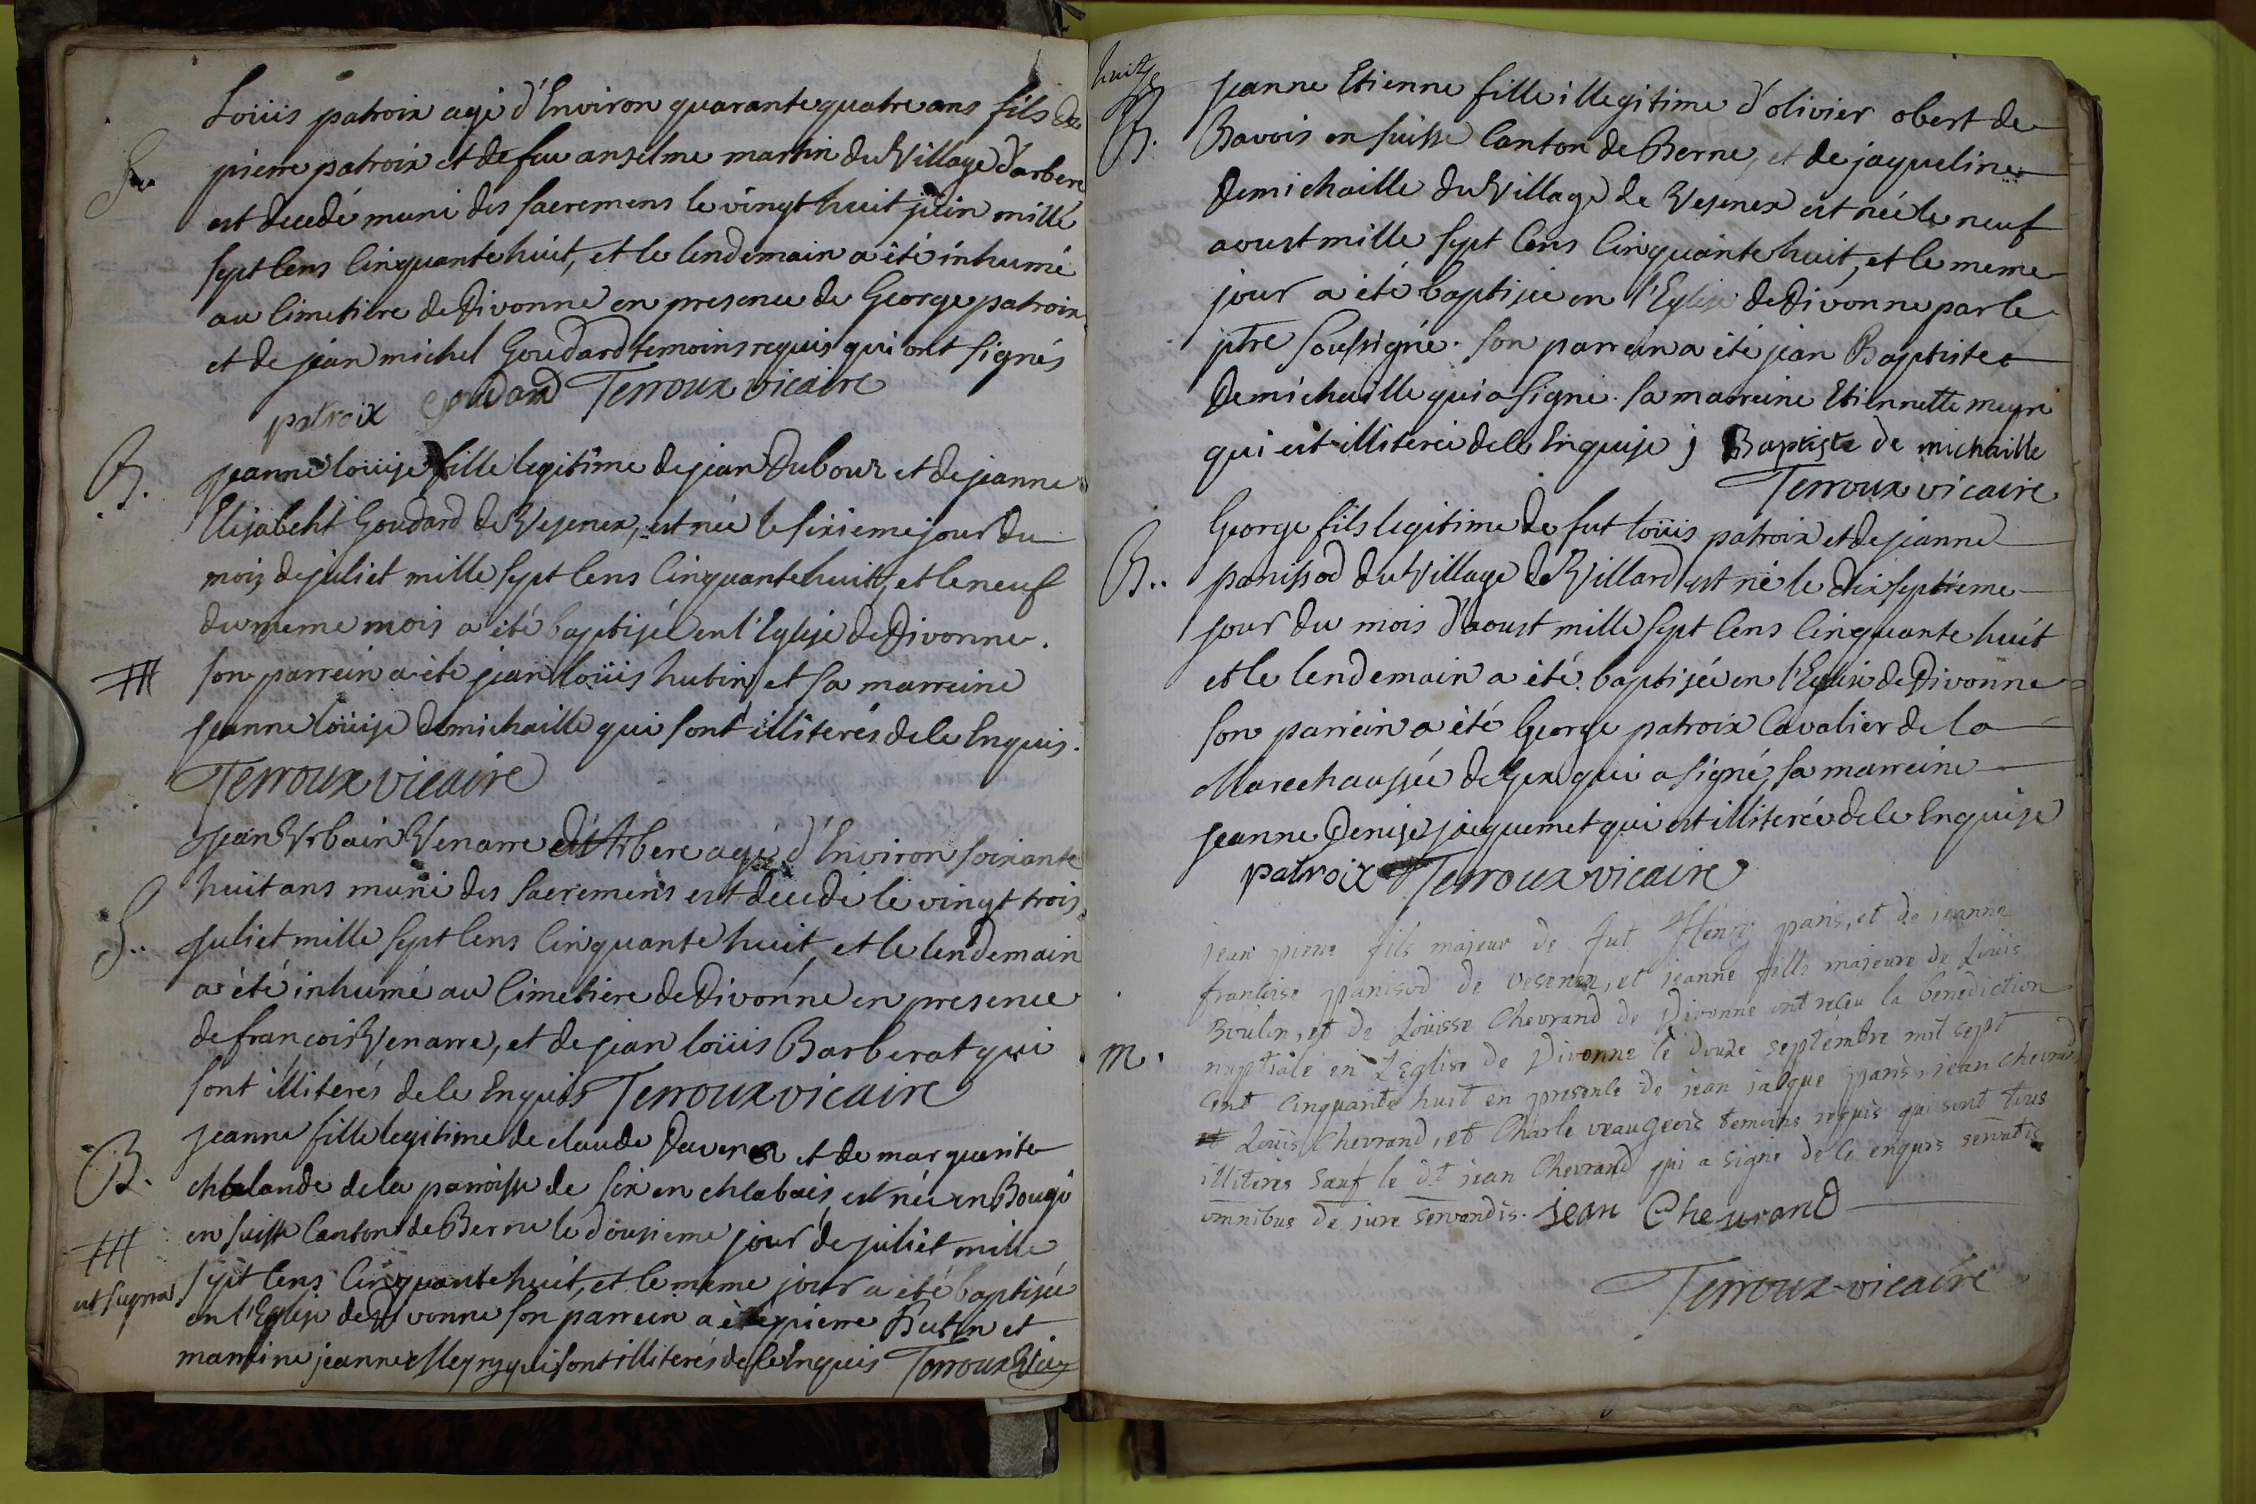 Loüis patroix agé d'Environ quarante quatre ans fils de
S..
pierre patroix et de fue anselme martin du Village d'arbere
est decedé muni des sacremens le vingt huit juin mille
sept Cens Cinquante huit, et le lendemain a été inhumé
au Cimetiere de Divonne en presence de George patroix
et de jean michel Goudard temoins requis qui ont signés
patroix Goudard Terroux vicaire
B.
Jeanne loüise fille legitime de jean Dubour et de jeanne
Elisabeht Goudard de Vesenex, est née le sixieme jour du
mois de juliet mille sept Cens Cinquante huit, et le neuf
du meme mois a été baptisée en l'Eglise de Divonne.
son parrein a été jean loüis hutin, et sa marreine
jeanne loüise demichaille qui sont illiterés de ce Enquis.
Terroux vicaire
Jean Urbain Venarre d'Arbere agé d'Environ soixante
huit ans muni des sacremens est decedé le vingt trois
S..
juliet mille sept Cens Cinquante huit, et le lendemain
a été inhumé au Cimetiere de Divonne en presence
de françois Venarre, et de jean loüis Barberat qui
sont illiterés de ce Enquis Terroux vicaire
B.
jeanne fille legitime de claude et de marguerite
chalande de la parroisse de six en chlabais, est née en Bougi
en suisse Canton de Berne le dousieme jour de juliet mille
ut supra
sept Cens Cinquante huit, et le meme jour a été baptisée
en l'Eglise de Divonne son parrein a été pierre Butin et
marreine jeanne Meyny qui sont illiterés de ce Enquis Terroux Vic.
huit
B.
Jeanne Etienne fille illegitime d'olivier obert de
Bavois en suisse Canton de Berne, et de jaqueline
Demichaille du Village de Vesenex est née le neuf
aoust mille sept Cens Cinquante huit, et le meme
jour a été baptisée en l'Eglise de Divonne par le
ptre soussigné. son parrein a été jean Baptiste
Demichaille qui a signé. sa marreine Etiennette megre
qui est illiterée de ce Enquise j Baptiste de michaille
Terroux vicaire
George fils legitime de fut loüis patroix et de jeanne
B..
panissod du Village de Villard est né le dix septieme
jour du mois d'aoust mille sept Cens Cinquante huit
et le lendemain a été baptisée en l'Eglise de Divonne
son parrein a été George patroix Cavalier de la
Marechaussée de Gex qui a signé, sa marreine
jeanne Denise jacquemet qui est illiterée de ce Enquise
patroix Terroux vicaire
jean pierre fils majeur de fut Henry paris, et de jeanne
francoise panisod de vesenex, et jeanne fille majeure de Loüis
Roulin, et de Loüisse Chevrand de Divonne ont receu la bénediction
m.
nuptiale en L'Eglise de Divonne le douze septembre mil sept
Cent Cinquante huit en presence de jean jacque paris, jean chevrand
et Loüis Chevrand, et Charle veaugeois temoins requis qui sont tous
illiteres sauf le d.t jean Chevrand qui a signé de ce enquis servatis
omnibus de jure servandis. jean Chevrand
Terroux vicaire